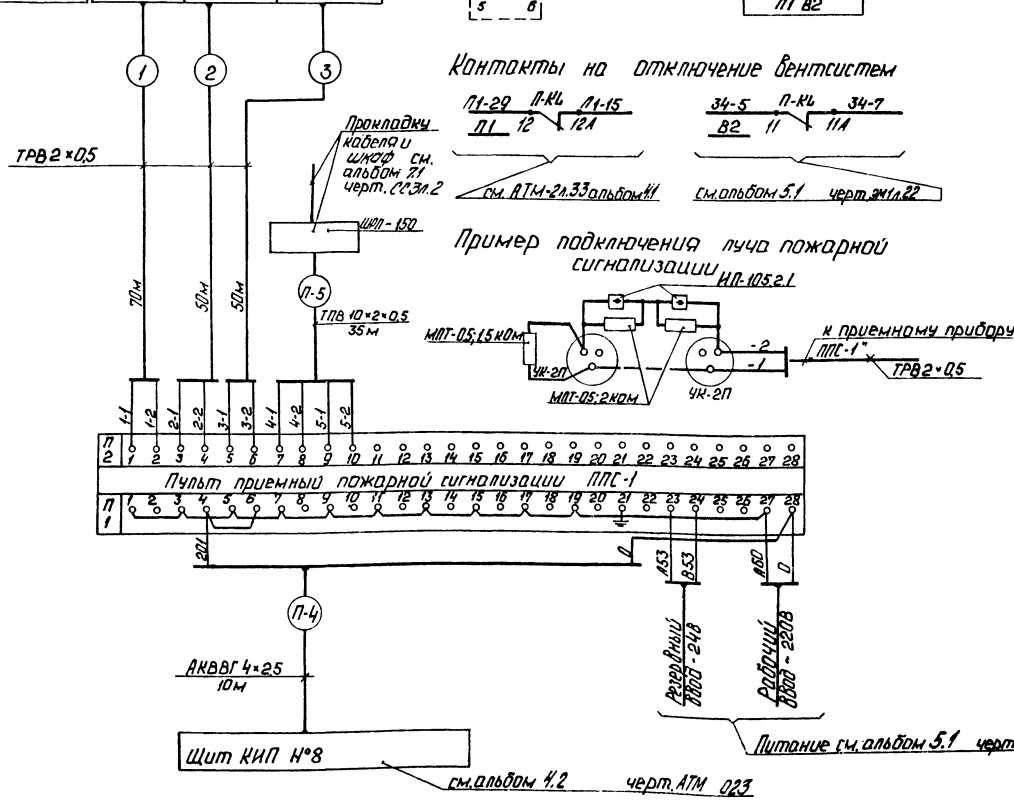 5 6
П1 В2
1 2 3
Контакты на отключение вентсистем
П1-29 П-К4 Л1-15
П1 12 12А
34-5 П-К4 34-7
В2 11 11А
см. АТМ-2л.33 альбом 4.1
см. альбом 5.1 черт. ЭМ1л.22
ТРВ 2×0,5
Прокладку
кабеля и
шкаф см.
альбом 7.1
черт. СС3л.2
ШРП-150
П-5
ТПВ 10×2×0,5
35м
70м
50м
50м
Пример подключения луча пожарной
сигнализации
ИП-105.2.1
МЛТ-0,5; 1,5 кОм
УК-2П
МЛТ-0,5; 2 кОм
УК-2П
-2
-1
к приемному прибору
"ППС-1"
ТРВ 2×0,5
1-1 1-2 2-1 2-2 3-1 3-2 4-1 4-2 5-1 5-2
П2
1 2 3 4 5 6 7 8 9 10 11 12 13 14 15 16 17 18 19 20 21 22 23 24 25 26 27 28
Пульт приемный пожарной сигнализации ППС-1
П1
1 2 3 4 5 6 7 8 9 10 11 12 13 14 15 16 17 18 19 20 21 22 23 24 25 26 27 28
201
0
А53 В53
А60 0
П-4
АКВВГ 4×2,5
10м
Резервный
ввод - 24В
Рабочий
ввод ~ 220В
Щит КИП №8
Питание см. альбом 5.1 черт
см. альбом 4.2 черт. АТМ 023